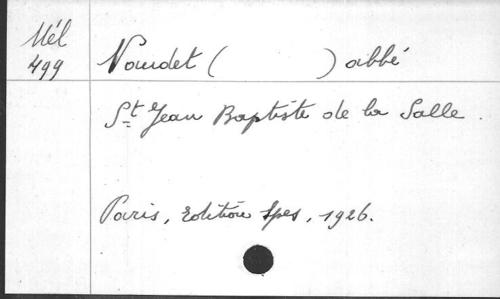 Mél
499
Voudet ( ) abbé
St Jean Baptiste de la Salle.
Paris, Edition Spes, 1926.